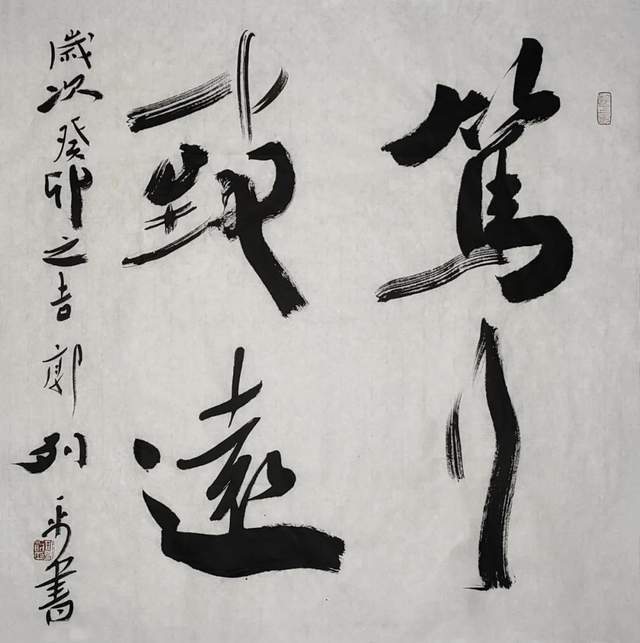 篤行
致遠
歲次癸卯之吉郭列平書